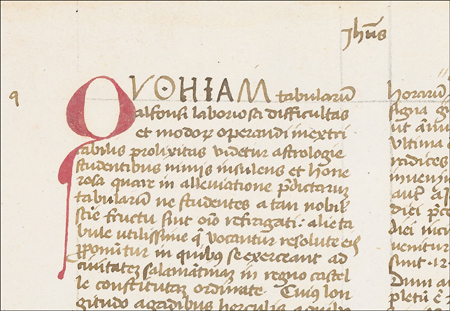 Jhũs
QVOHIAM tabularũ
alfonsi laboriosa difficultas
et modoꝝ operandi inextri
cabilis prolixitas videtur astrologie
studentibus nimis insulens et hone
rosa quare in alleuiatione p̃dictarum
tabularũ ne studentes a tan nobili
scĩe fructu sint oĩo refragati: alie ta
bule utilissime q̃ vocantur resolute eis
ꝓponũtur in quibus se exerceant ad
ciuitatem salamantinam in regno castel
le constitutam ordinate. Cuius lon
gitudo a gadibus herculis
horarũ
signa
ultima
radices
diei
diei
sint .12.
Dum au
pletũ